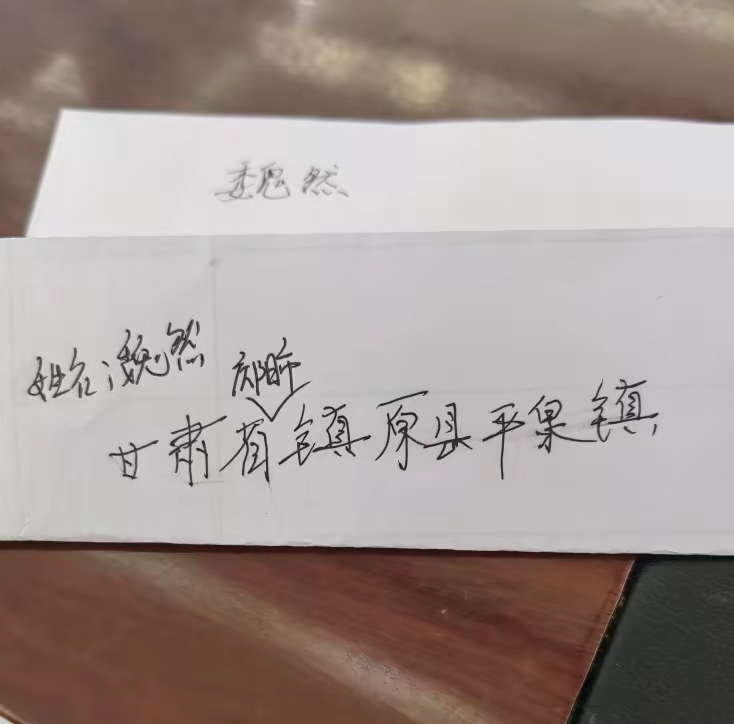 魏然
姓名：魏然
庆阳市
甘肃省镇原县平泉镇